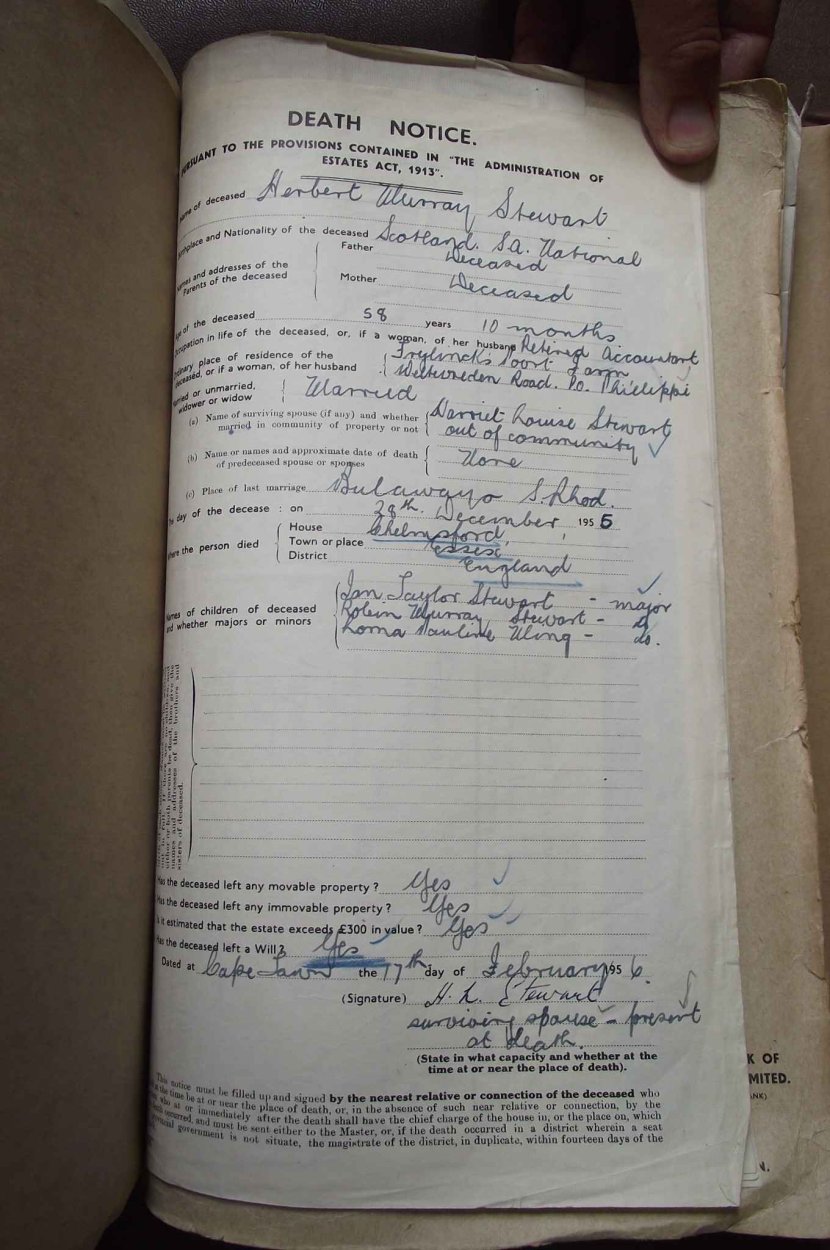 DEATH NOTICE.
PURSUANT TO THE PROVISIONS CONTAINED IN "THE ADMINISTRATION OF
ESTATES ACT, 1913".
Name of deceased Herbert Murray Stewart
Birthplace and Nationality of the deceased Scotland. S.A. National
Names and addresses of the Parents of the deceased
Father Deceased
Mother Deceased
Age of the deceased 58 years 10 months
Occupation in life of the deceased, or, if a woman, of her husband Retired Accountant
Ordinary place of residence of the deceased, or if a woman, of her husband
Poort Farm
Weltevreden Road. P.O. Philippi
Married or unmarried, widower or widow Married
(a) Name of surviving spouse (if any) and whether married in community of property or not
Harriet Louise Stewart
out of community
(b) Name or names and approximate date of death of predeceased spouse or spouses None
(c) Place of last marriage Bulawayo S. Rhod.
The day of the decease : on 28th. December, 1955
Where the person died
House Chelmsford,
Town or place Essex
District England
Names of children of deceased and whether majors or minors
Ian Taylor Stewart - major
Robin Murray Stewart - do
Lorna Pauline - do.
names and addresses of the brothers and
sisters of deceased.
Has the deceased left any movable property? Yes
Has the deceased left any immovable property? Yes
Is it estimated that the estate exceeds £300 in value? Yes
Has the deceased left a Will? Yes
Dated at Cape Town the 17th day of February 1956.
(Signature) H. L. Stewart
surviving spouse - present
at death.
(State in what capacity and whether at the
time at or near the place of death).
This notice must be filled up and signed by the nearest relative or connection of the deceased who
at the time be at or near the place of death, or, in the absence of such near relative or connection, by the
who at or immediately after the death shall have the chief charge of the house in, or the place on, which
occurred, and must be sent either to the Master, or, if the death occurred in a district wherein a seat
provincial government is not situate, the magistrate of the district, in duplicate, within fourteen days of the
K OF
MITED.
ANK)
N.